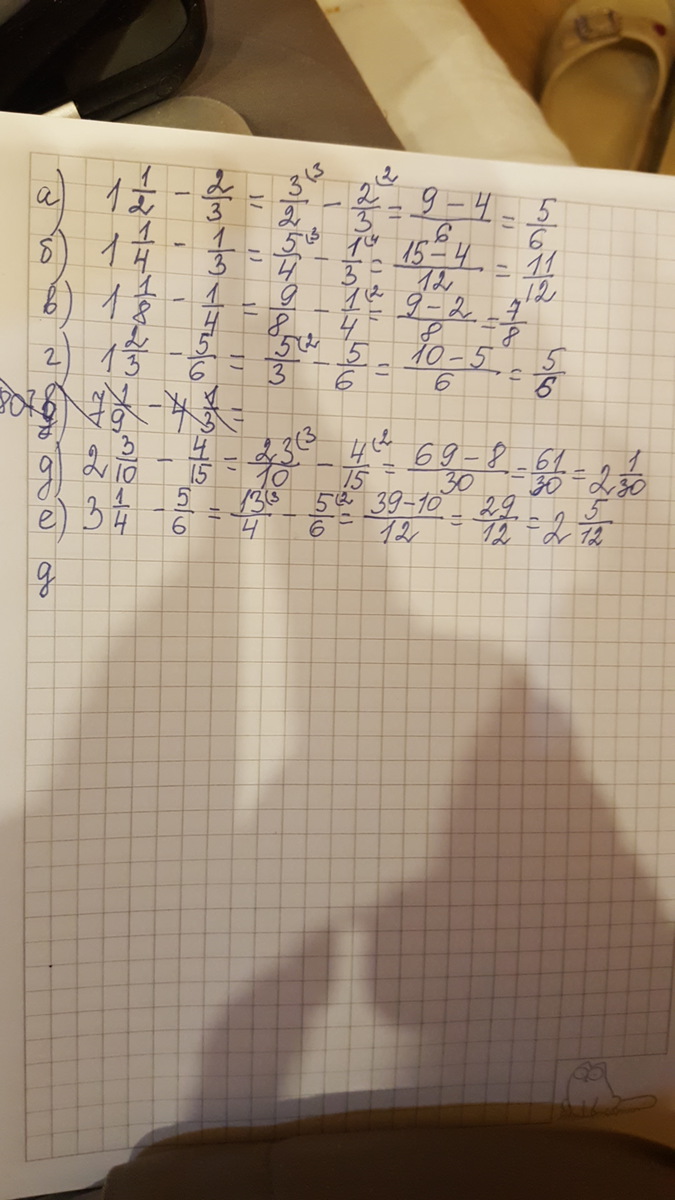 а) 1 1/2 - 2/3 = 3/2 (3 - 2/3 (2 = 9-4/6 = 5/6
б) 1 1/4 - 1/3 = 5/4 (3 - 1/3 (4 = 15-4/12 = 11/12
в) 1 1/8 - 1/4 = 9/8 - 1/4 (2 = 9-2/8 = 7/8
г) 1 2/3 - 5/6 = 5/3 (2 - 5/6 = 10-5/6 = 5/6
7 1/9 - 4 1/3 =
д) 2 3/10 - 4/15 = 23/10 (3 - 4/15 (2 = 69-8/30 = 61/30 = 2 1/30
е) 3 1/4 - 5/6 = 13/4 (3 - 5/6 (2 = 39-10/12 = 29/12 = 2 5/12
д